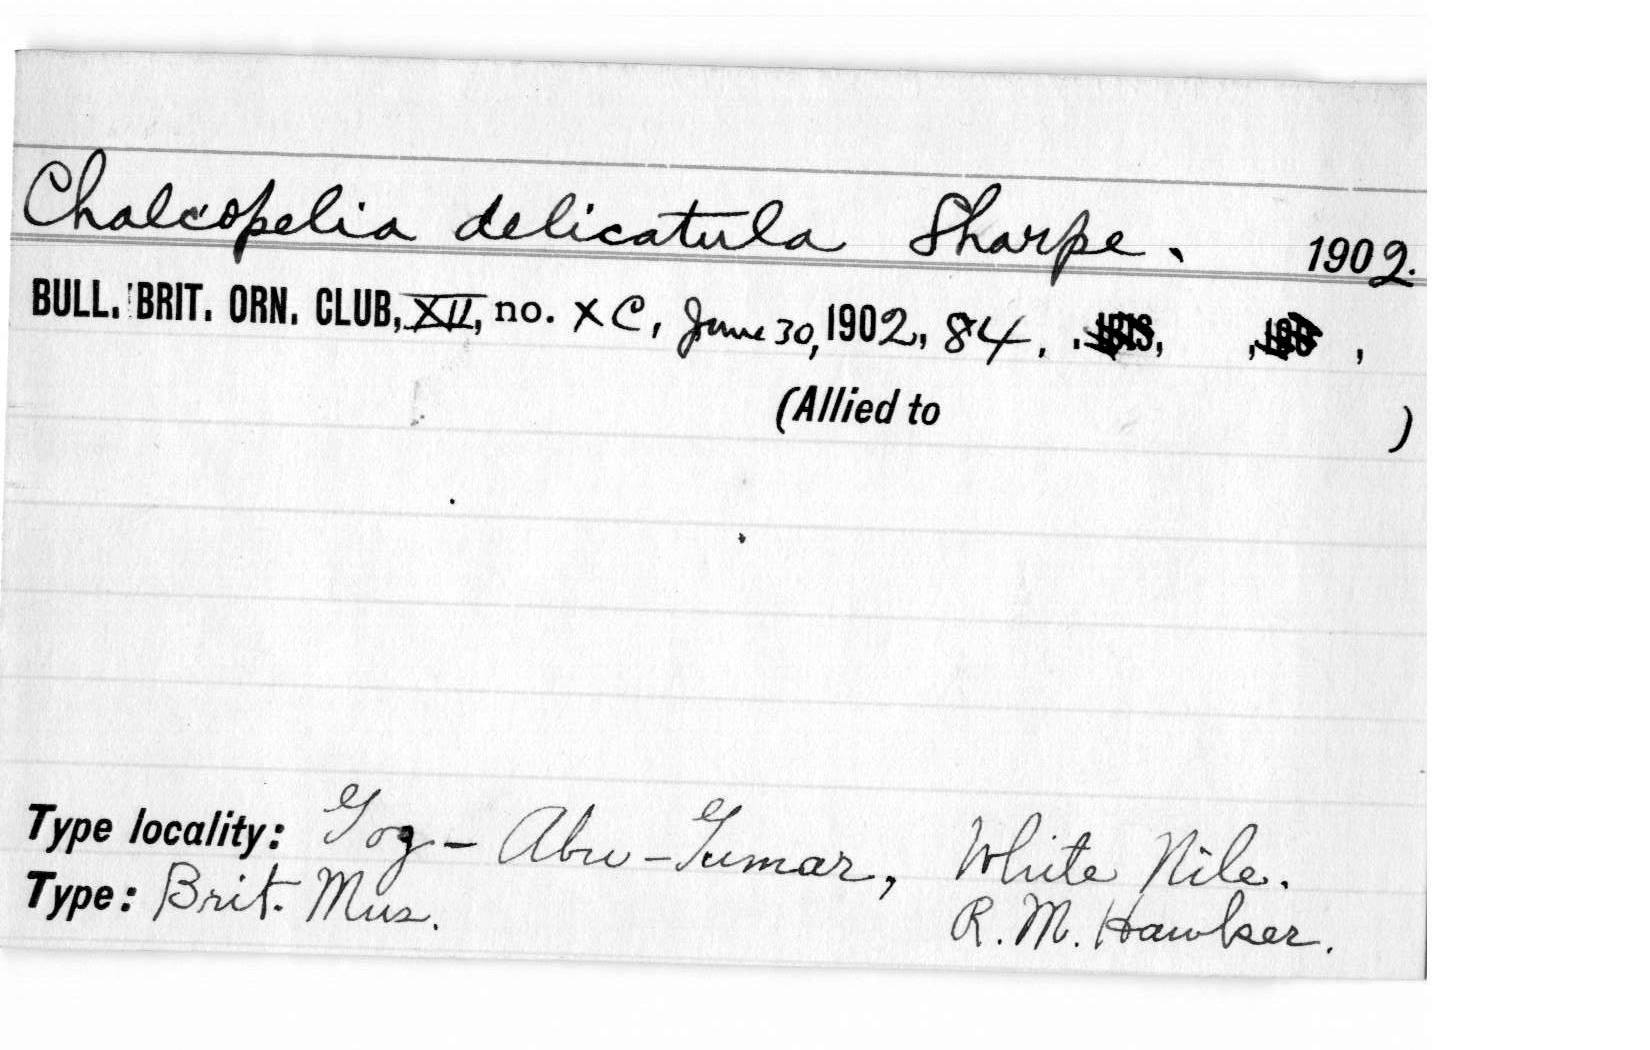 Chalcopelia delicatula Sharpe. 1902.
BULL. BRIT. ORN. CLUB, XII, no. XC, June 30, 1902, 84. . , , ,
(Allied to )
Type locality: Gog - Abu - Gumar, White Nile.
Type: Brit. Mus. R. M. Hawker.